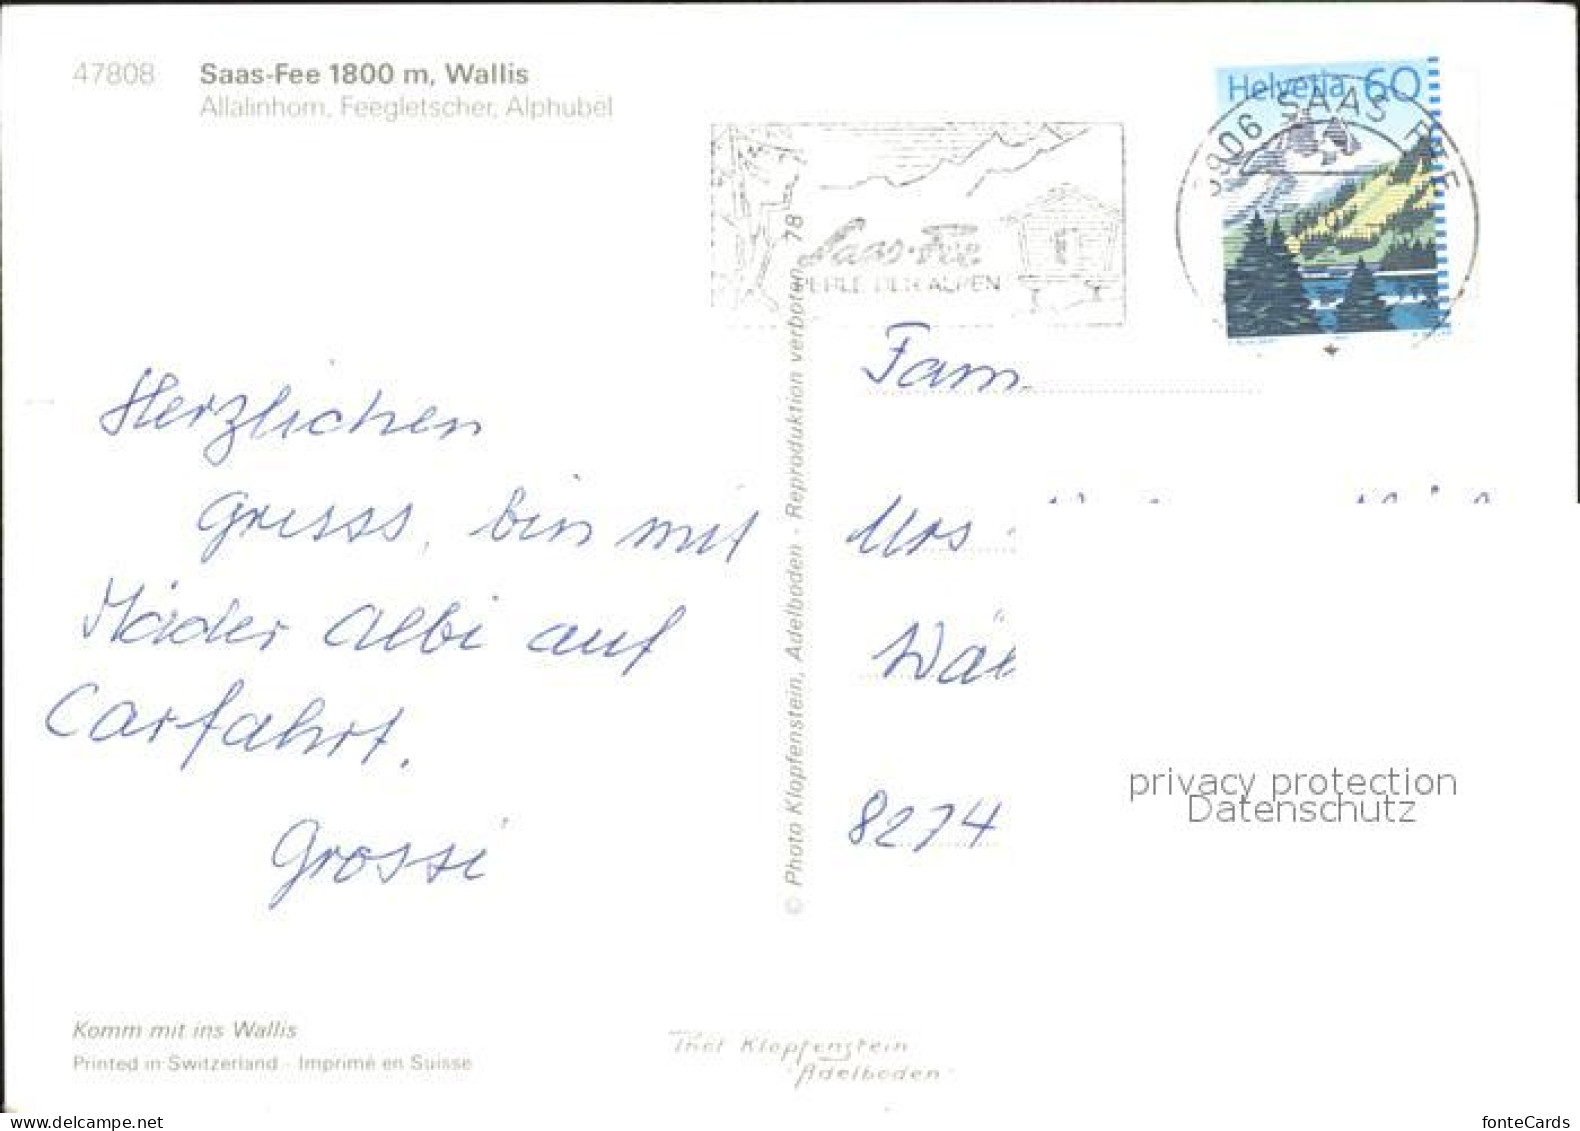 47808 Saas-Fee 1800 m, Wallis
Allalinhorn, Feegletscher, Alphubel
Helvetia 60
3906 SAAS FEE
78
Saas-Fee
PERLE DER ALPEN
Herzlichen
Gruss, bin mit
Mäder Albi auf
Carfahrt.
Grossi
© Photo Klopfenstein, Adelboden - Reproduktion verboten
Fam.
Urs
8274
privacy protection
Datenschutz
Komm mit ins Wallis
Printed in Switzerland - Imprimé en Suisse
Thöl Klopfenstein
Adelboden
www.delcampe.net
fonteCards